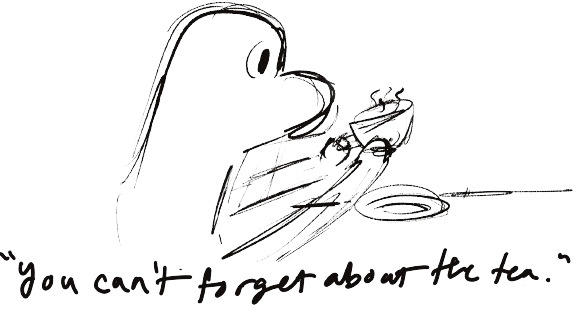 "You can't forget about the tea."